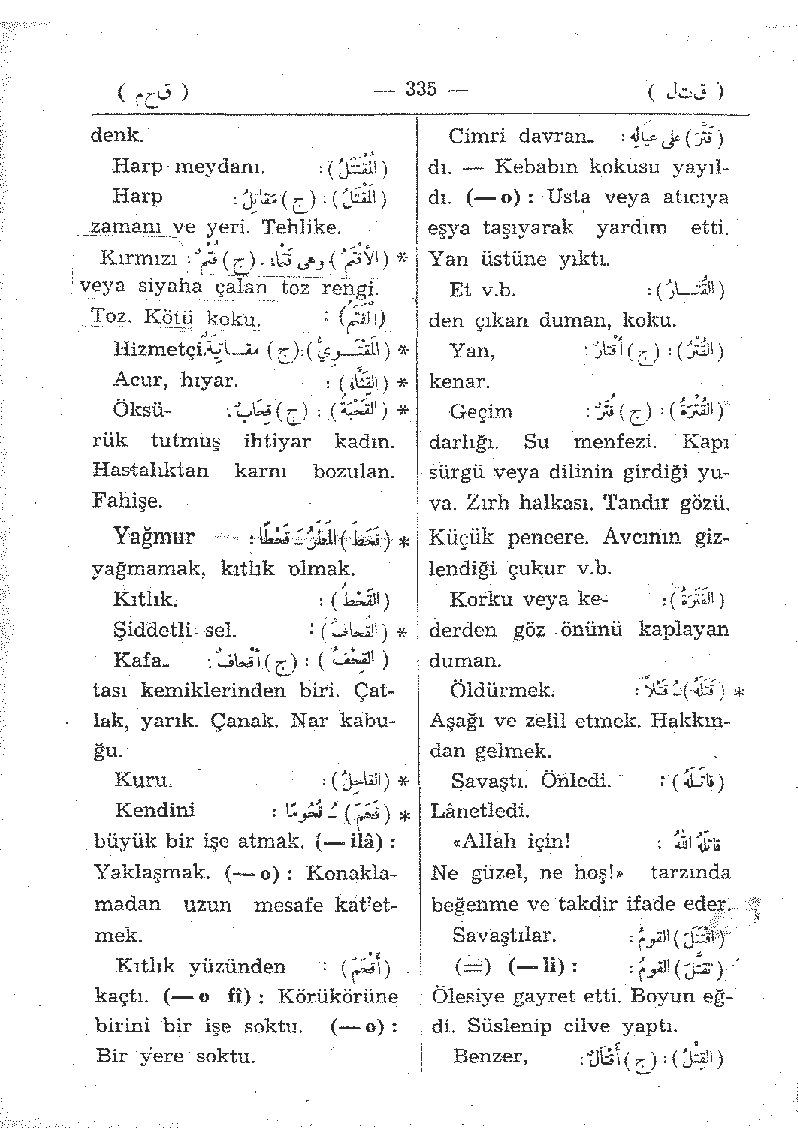 ( قتل ) — 335 — ( قحم )
(قَتَّرَ) على عياله: Cimri davran-
dı. — Kebabın kokusu yayıl-
dı. (—o) : Usta veya atıcıya
eşya taşıyarak yardım etti.
Yan üstüne yıktı.
(القُتَارُ): Et v.b.
den çıkan duman, koku.
(القُتْرُ): (ج) أَقْتَارٌ: Yan,
kenar.
(القُتْرَةُ): (ج) قُتَرٌ: Geçim
darlığı. Su menfezi. Kapı
sürgü veya dilinin girdiği yu-
va. Zırh halkası. Tandır gözü.
Küçük pencere. Avcının giz-
lendiği çukur v.b.
(القَتَرَةُ): Korku veya ke-
derden göz önünü kaplayan
duman.
* (قَتَلَهُ) ـُ قَتْلاً: Öldürmek.
Aşağı ve zelil etmek. Hakkın-
dan gelmek.
(قَاتَلَهُ): Savaştı. Önledi.
Lânetledi.
قاتله الله: «Allah için!
Ne güzel, ne hoş!» tarzında
beğenme ve takdir ifade eder.
(اقْتَتَلَ) القومُ: Savaştılar.
(تَقَتَّلَ) القومُ: (=) (—li) :
Ölesiye gayret etti. Boyun eğ-
di. Süslenip cilve yaptı.
(القِتْلُ): (ج) أَقْتَالٌ: Benzer,
denk.
(المُقْتَتَلُ): Harp meydanı.
(المَقْتَلُ): (ج) مَقَاتِلُ: Harp
zamanı ve yeri. Tehlike.
* (الأَقْتَمُ) وهى قَتْمَاء. (ج) قُتْمٌ: Kırmızı
veya siyaha çalan toz rengi.
(القَتَمُ) : Toz. Kötü koku.
* (المَقْتَوِيُّ): (ج) مقاتية: Hizmetçi.
* (القِثَّاء) : Acur, hıyar.
* (القَحْبَةُ) : (ج) قِحَابٌ: Öksü-
rük tutmuş ihtiyar kadın.
Hastalıktan karnı bozulan.
Fahişe.
* (قَحَطَ) المَطَرُ ـَ قَحْطًا: Yağmur
yağmamak, kıtlık olmak.
(القَحْطُ) : Kıtlık.
* (القُحَافُ) : Şiddetli sel.
(القِحْفُ) : (ج) أَقْحَافٌ: Kafa-
tası kemiklerinden biri. Çat-
lak, yarık. Çanak. Nar kabu-
ğu.
* (القَاحِلُ): Kuru.
* (قَحَمَ) ـُ قُحُومًا : Kendini
büyük bir işe atmak. (—ilâ) :
Yaklaşmak. (—o) : Konakla-
madan uzun mesafe kat'et-
mek.
(أَقْحَمَ) : Kıtlık yüzünden
kaçtı. (—o fî) : Körükörüne
birini bir işe soktu. (—o) :
Bir yere soktu.